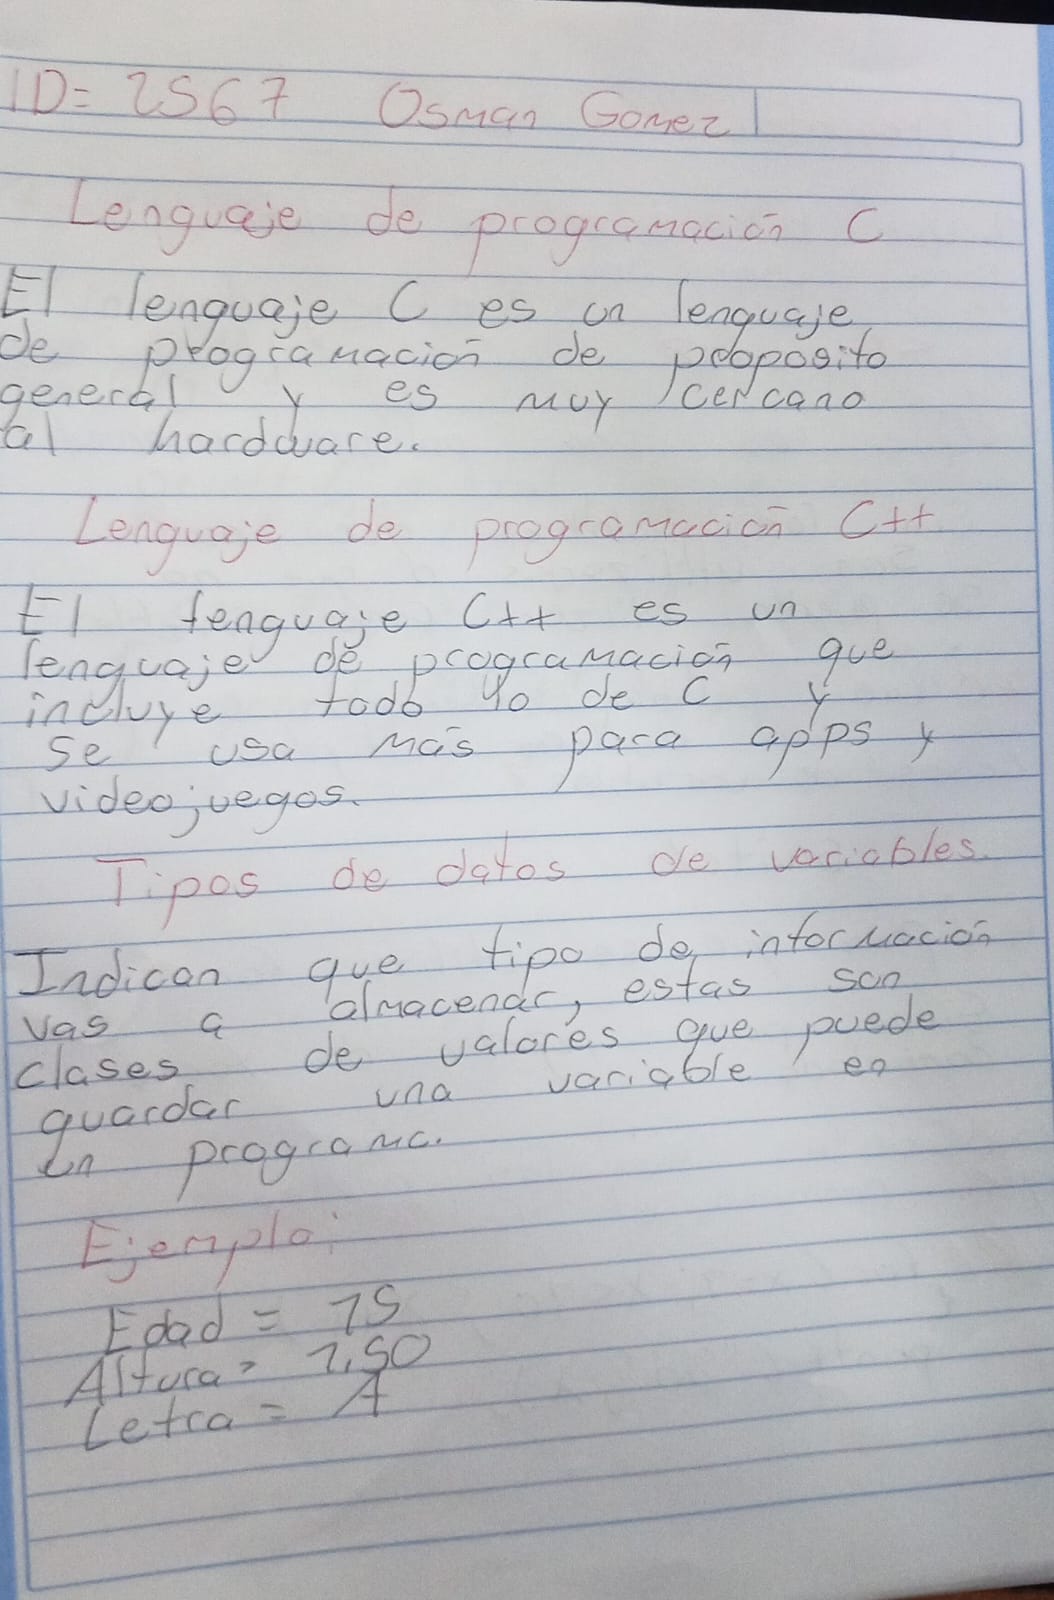 ID= 2567 Osman Gomez
Lenguaje de programación C
El lenguaje C es un lenguaje
de programación de proposito
general y es muy cercano
al hardware.
Lenguaje de programación C++
El lenguaje C++ es un
lenguaje de programación que
incluye todo lo de C y
se usa más para apps y
videojuegos.
Tipos de datos de variables.
Indican que tipo de información
vas a almacenar, estas son
clases de valores que puede
guardar una variable en
un programa.
Ejemplo:
Edad = 15
Altura= 1,50
Letra = A